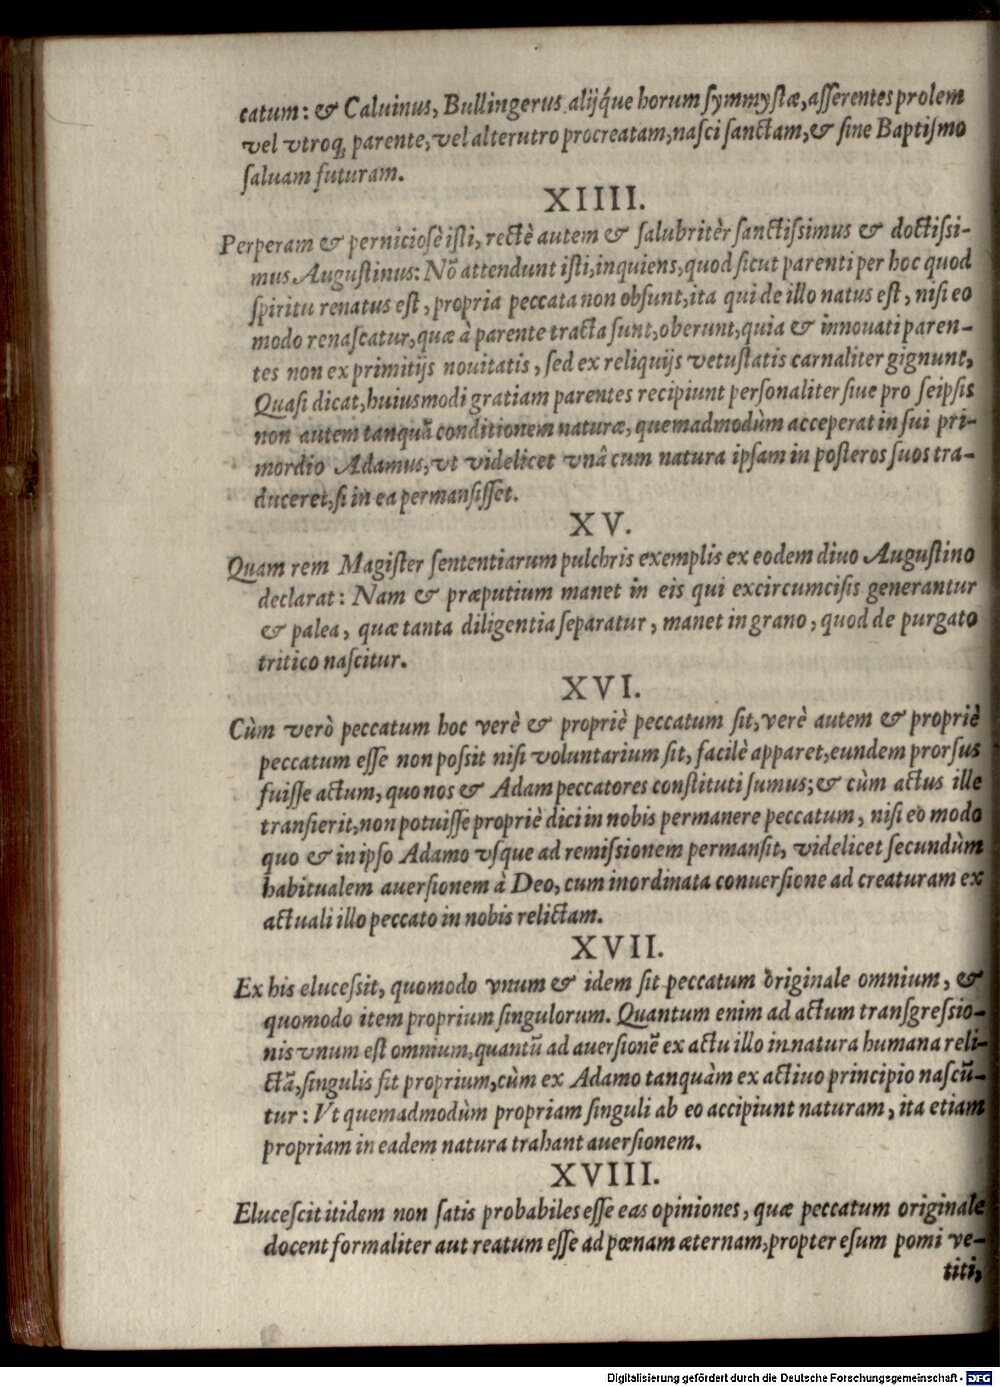 catum: & Caluinus, Bullingerus alijq́ue horum ſymmyſtæ, aſſerentes prolem
vel vtroq; parente, vel alterutro procreatam, naſci ſanctam, & ſine Baptiſmo
ſaluam futuram.
XIIII.
Perperam & pernicioſè iſti, rectè autem & ſalubritèr ſanctiſsimus & doctiſsi-
mus Auguſtinus: Nõ attendunt iſti, inquiens, quod ſicut parenti per hoc quod
ſpiritu renatus eſt, propria peccata non obſunt, ita qui de illo natus eſt, niſi eo
modo renaſcatur, quæ à parente tracta ſunt, oberunt, quia & innouati paren-
tes non ex primitijs nouitatis, ſed ex reliquijs vetuſtatis carnaliter gignunt,
Quaſi dicat, huiusmodi gratiam parentes recipiunt perſonaliter ſiue pro ſeipſis
non autem tanquã conditionem naturæ, quemadmodùm acceperat in ſui pri-
mordio Adamus, vt videlicet vnâ cum natura ipſam in poſteros ſuos tra-
duceret, ſi in ea permanſiſſet.
XV.
Quam rem Magiſter ſententiarum pulchris exemplis ex eodem diuo Auguſtino
declarat: Nam & præputium manet in eis qui excircumciſis generantur
& palea, quæ tanta diligentia ſeparatur, manet in grano, quod de purgato
tritico naſcitur.
XVI.
Cùm verò peccatum hoc verè & propriè peccatum ſit, verè autem & propriè
peccatum eſſe non poſsit niſi voluntarium ſit, facilè apparet, eundem prorſus
fuiſſe actum, quo nos & Adam peccatores conſtituti ſumus; & cùm actus ille
tranſierit, non potuiſſe propriè dici in nobis permanere peccatum, niſi eo modo
quo & in ipſo Adamo vſque ad remiſsionem permanſit, videlicet ſecundùm
habitualem auerſionem à Deo, cum inordinata conuerſione ad creaturam ex
actuali illo peccato in nobis relictam.
XVII.
Ex his eluceſsit, quomodo vnum & idem ſit peccatum originale omnium, &
quomodo item proprium ſingulorum. Quantum enim ad actum tranſgreſsio-
nis vnum eſt omnium, quantũ ad auerſionẽ ex actu illo in natura humana reli-
ctã, ſingulis ſit proprium, cùm ex Adamo tanquàm ex actiuo principio naſcũ-
tur: Vt quemadmodùm propriam ſinguli ab eo accipiunt naturam, ita etiam
propriam in eadem natura trahant auerſionem.
XVIII.
Eluceſcit itidem non ſatis probabiles eſſe eas opiniones, quæ peccatum originale
docent formaliter aut reatum eſſe ad pœnam æternam, propter eſum pomi ve-
titi,
Digitalisierung gefördert durch die Deutsche Forschungsgemeinschaft - DFG